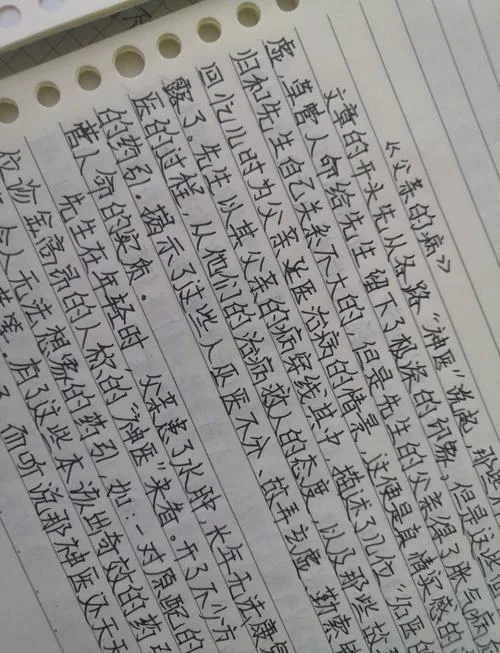 《父亲的病》
文章的开头先从各路“神医”说起,那些
虚,草菅人命给先生留下了极深的印象。但是这些
归和先生自己关系不大的,但是先生的父亲得了胀气病
回忆儿时为父亲延医治病的情景,这便是真情实感的
露了。先生以其父亲的病穿线其中,描述了几位“名医的
医的过程,从他们的治病救人的态度,以及那些故
的药引。揭示了这些人巫医不分、故弄玄虚、勒索
菅人命的实质。
先生在年轻时,父亲患了水肿,长年无法康
位诊金高昂的人称的“神医”来看。开了不少方
令人无法想象的药引,如:一对原配的
等。有了这些本该出奇效的药引
而听说那神医又天天